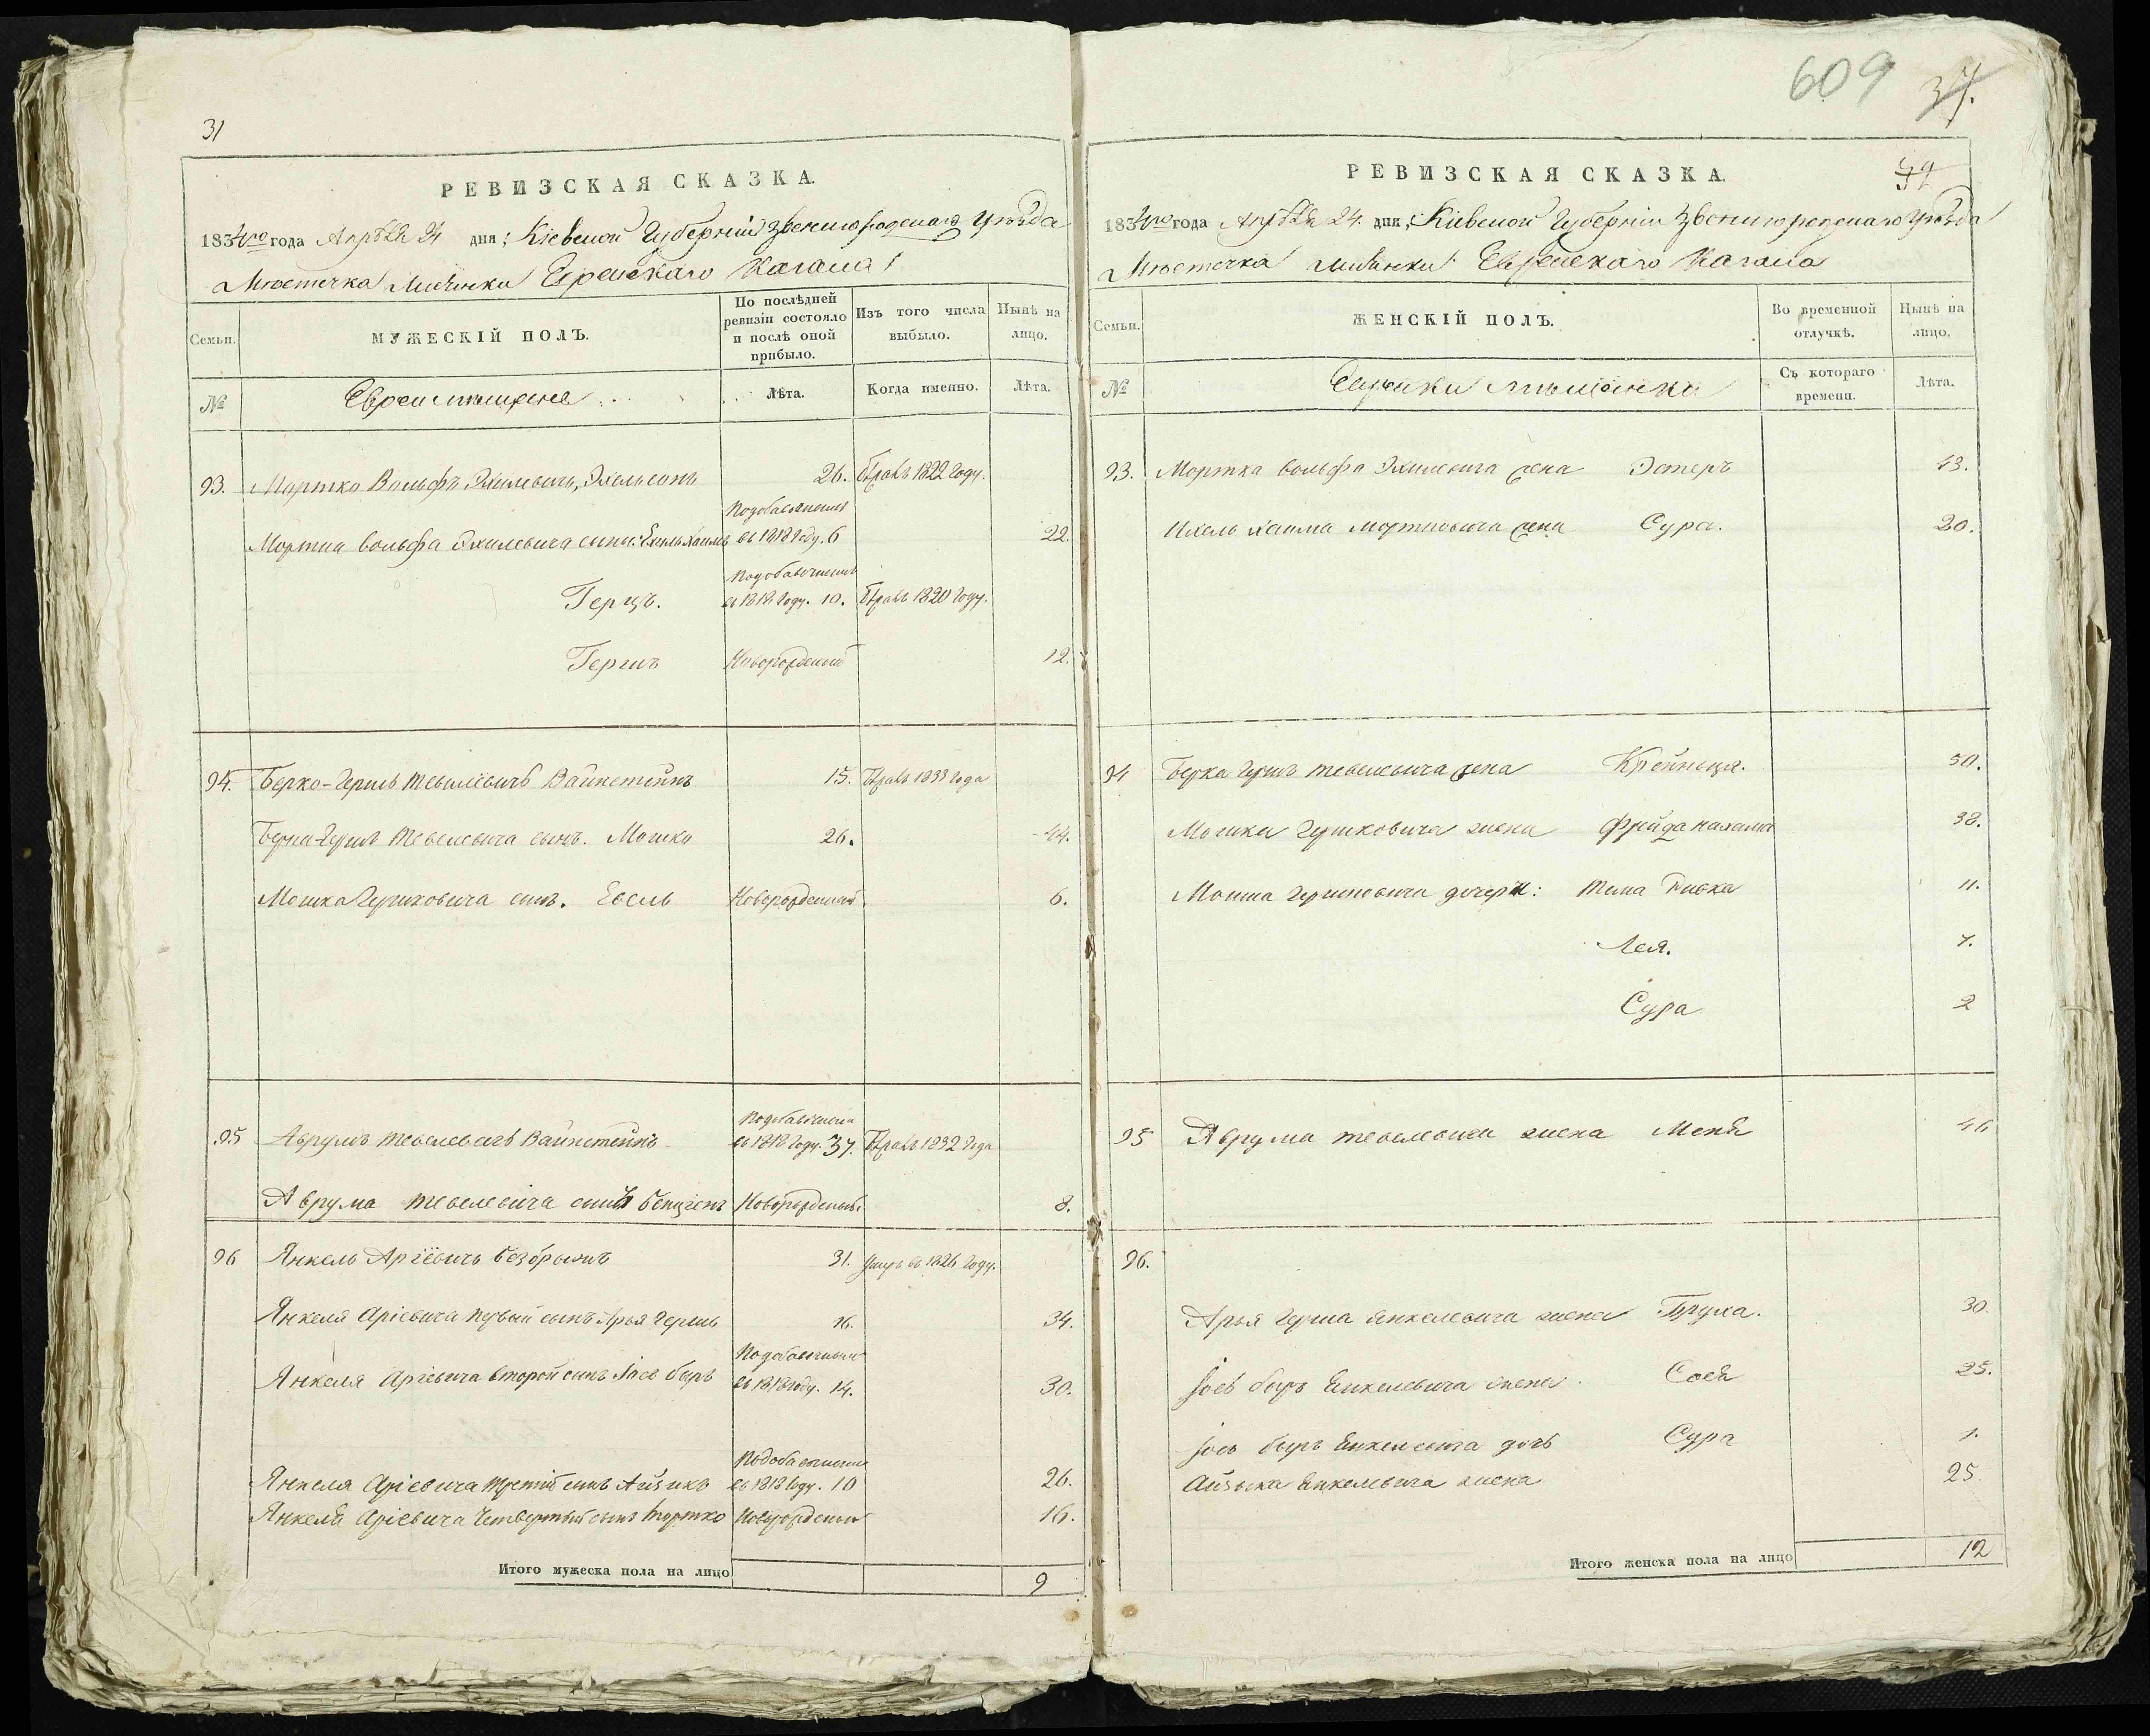 31
РЕВИЗСКАЯ СКАЗКА.
1834го года Апрѣля 24 дня; Кіевской Губерніи Звенигородскаго Уѣзда
Мѣстечка Еврейскаго Кагала
Семьи.
МУЖЕСКІЙ ПОЛЪ.
По послѣдней ревизіи состояло и послѣ оной прибыло.
Изъ того числа выбыло.
Нынѣ на лицо.
№
Евреи мѣщане
Лѣта.
Когда именно.
Лѣта.
93. Мортко Вольфъ 26. 1822 году.
Мортка Вольфа сынъ: Хаимъ въ 1818 году. 6 22.
Герцъ. въ 1818 году. 10. 1820 году.
Гершъ Новорожденный 12.
94. Берко-Гершъ Тевелевичъ Вайнстейнъ 15. 1833 года
Берка-Герша Тевелевича сынъ. Мошко 26. 44.
Мошка Гершковича сынъ. Евсель Новорожденный 6.
95 Аврумъ Тевелевичъ Вайнстейнъ въ 1818 году. 37. 1832 года
Аврума Тевелевича сынъ Новорожденный 8.
96 Янкель Аріевичъ 31. умеръ въ 1826 году.
Янкеля Аріевича первый сынъ Арья Гершъ 16. 34.
Янкеля Аріевича второй сынъ Іосъ Беръ въ 1818 году. 14. 30.
Янкеля Аріевича третій сынъ Айзикъ въ 1818 году. 10 26.
Янкеля Аріевича четвертый сынъ Мортко Новорожденный 16.
Итого мужеска пола на лицо 9
609 37.
РЕВИЗСКАЯ СКАЗКА.
1834го года Апрѣля 24. дня; Кіевской Губерніи Звенигородскаго Уѣзда
Мѣстечка Еврейскаго Кагала
Семьи.
ЖЕНСКІЙ ПОЛЪ.
Во временной отлучкѣ.
Нынѣ на лицо.
№
Еврейки мѣщанки
Съ котораго времени.
Лѣта.
93. Мортка Вольфа жена Эстеръ 43.
Хаима Мортковича жена Сура. 20.
94 Берка Герша Тевелевича жена Крейнеця. 50.
Мошка Гершковича жена Фрейда 38.
Мошка Гершковича дочери: Ривка 11.
Лея. 7.
Сура 2
95 Аврума Тевелевича жена Меня 46
96.
Арья Герша Янкелевича жена Бруха. 30.
Іосъ Беръ Янкелевича жена Сося 25.
Іосъ Беръ Янкелевича дочь Сура 1.
Айзика Янкелевича жена 25.
Итого женска пола на лицо 12